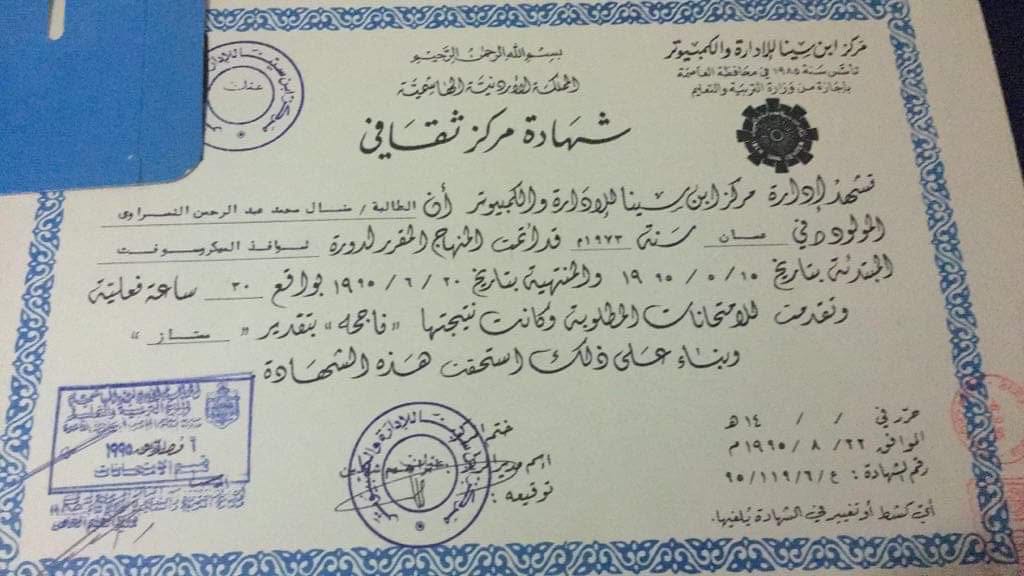 بسم الله الرحمن الرحيم
المملكة الأردنية الهاشمية
مركز ابن سينا للإدارة والكمبيوتر
تأسس سنة ١٩٨٥ في محافظة العاصمة
بإجازة من وزارة التربية والتعليم
عمان
شهادة مركز ثقافي
تشهد إدارة مركز ابن سينا للإدارة والكمبيوتر أن الطالبة / محمد عبد الرحمن
المولود في سنة ١٩٧٣م قد أتمت المنهاج المقرر لدورة
المبتدئة بتاريخ ١٥ / ٥ / ١٩٩٥ والمنتهية بتاريخ ٢٠ / ٦ / ١٩٩٥ بواقع ٣٠ ساعة فعلية
وتقدمت للامتحانات المطلوبة وكانت نتيجتها «ناجحه» بتقدير " "
وبناء على ذلك استحقت هذه الشهادة
حرر في / / ١٤ هـ
الموافق ٢٢ / ٨ / ١٩٩٥ م
رقم الشهادة : ع / ٦ / ١١٩ / ٩٥
أي كشط أو تغيير في الشهادة يلغيها.
ختم
اسم مدير
توقيعه :
وزارة التربية والتعليم
١٩٩٥
قسم الامتحانات